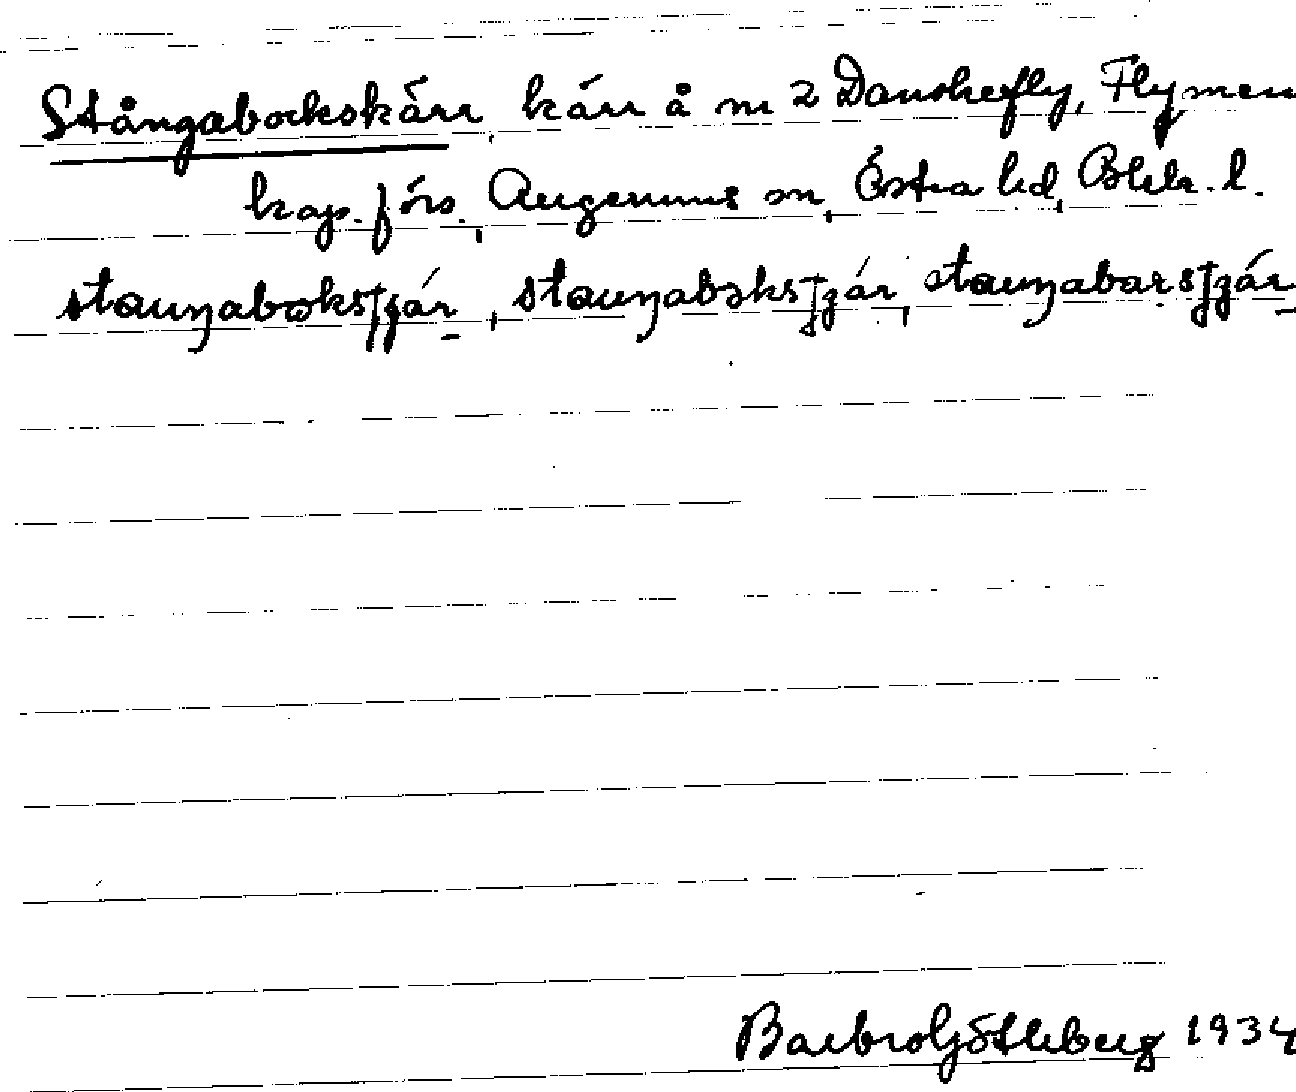 Stångabockskärr, kärr å nr 2 Danskefly, Flymen
kap. förs., Augerums sn, Östra hd, Blek. l.
stauŋaboksʃgár, stauŋabɔksʃgár, stauŋabarsʃgár
Barbro Göthberg 1934